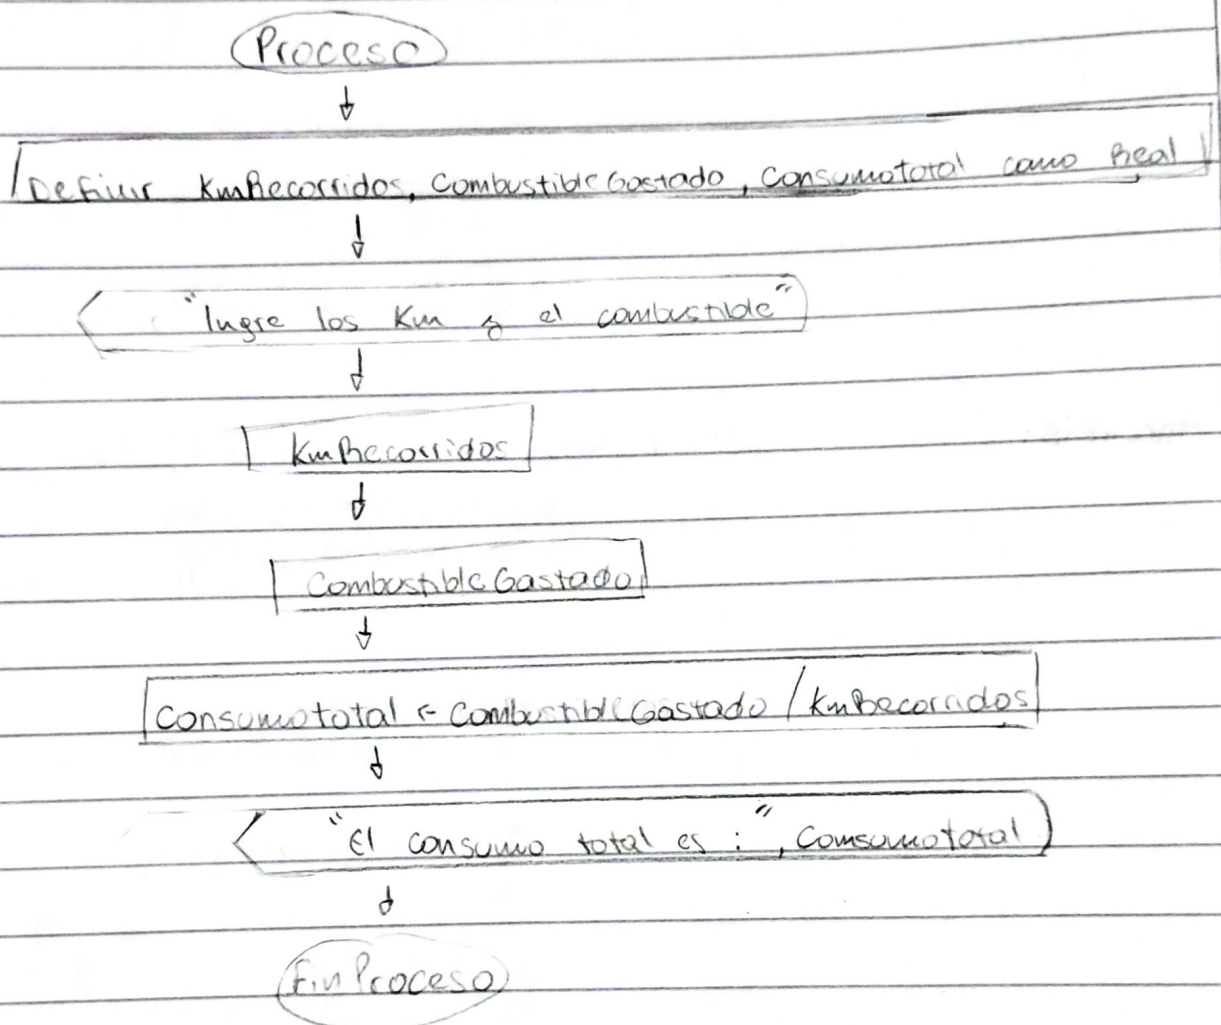 Proceso
Definir KmRecorridos, CombustibleGastado, Consumototal como Real
"Ingre los Km y el combustible"
KmRecorridos
CombustibleGastado
Consumototal ← CombustibleGastado / KmRecorridos
"El consumo total es : ", Comsumototal
Fin Proceso